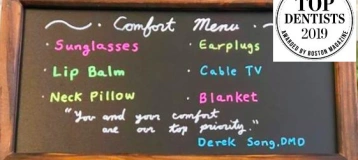 Comfort Menu
· Sunglasses
· Earplugs
· Lip Balm
· Cable TV
· Neck Pillow
· Blanket
"You and your comfort
are our top priority."
Derek Song, DMD
TOP
DENTISTS
2019
AWARDED BY BOSTON MAGAZINE